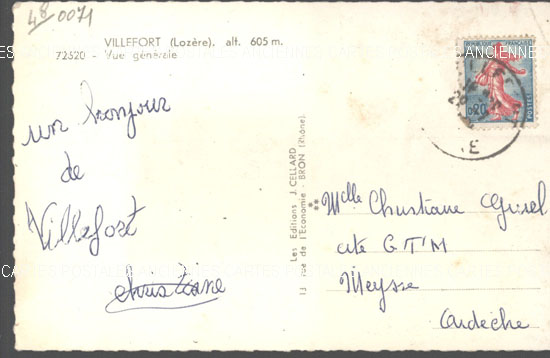 48 0071
VILLEFORT (Lozère). alt. 605 m.
72520 - Vue générale
un bonjour
de
Villefort
christiane
Les Editions J. CELLARD
11 rue de l'Economie - BRON (Rhône)
REPUBLIQUE FRANÇAISE
0,20
POSTES
Melle Christiane
cité G.T'M
Meysse
Ardèche
CARTES POSTALES ANCIENNES